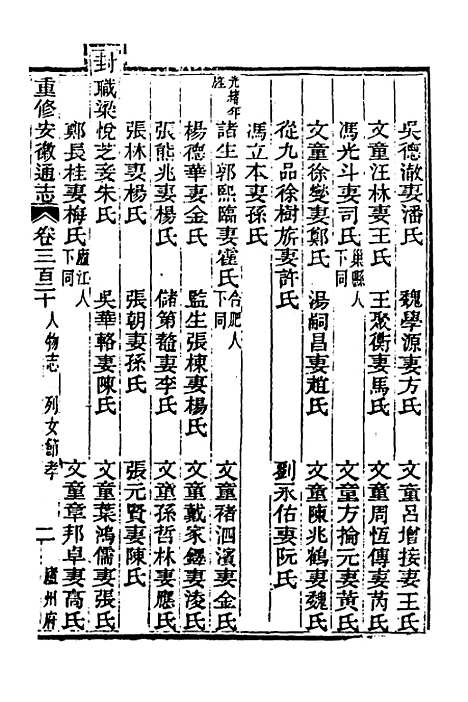 吳德澈妻潘氏　魏學源妻方氏　文童呂增接妻王氏
文童汪林妻王氏　王聚衡妻馬氏　文童周恆傳妻芮氏
馮光斗妻司氏巢縣人下同　文童方掄元妻黃氏
文童徐燮妻鄭氏　湯嗣昌妻趙氏　文童陳兆鶴妻魏氏
從九品徐樹旂妻許氏　劉永佑妻阮氏
馮立本妻孫氏
光緒年旌
諸生郭熙臨妻霍氏合肥人下同　文童褚泗濱妻金氏
楊德華妻金氏　監生張棟妻楊氏　文童戴家鐸妻淩氏
張熊兆妻楊氏　儲第鼇妻李氏　文童孫哲林妻應氏
張林妻楊氏　張朝妻孫氏　張元賢妻陳氏
封職梁悅芝妾朱氏　吳華輅妻陳氏　文童葉鴻儒妻張氏
鄭長桂妻梅氏廬江人下同　文童章邦卓妻高氏
重修安徽通志　卷三百二十　人物志　列女節孝　二　廬州府